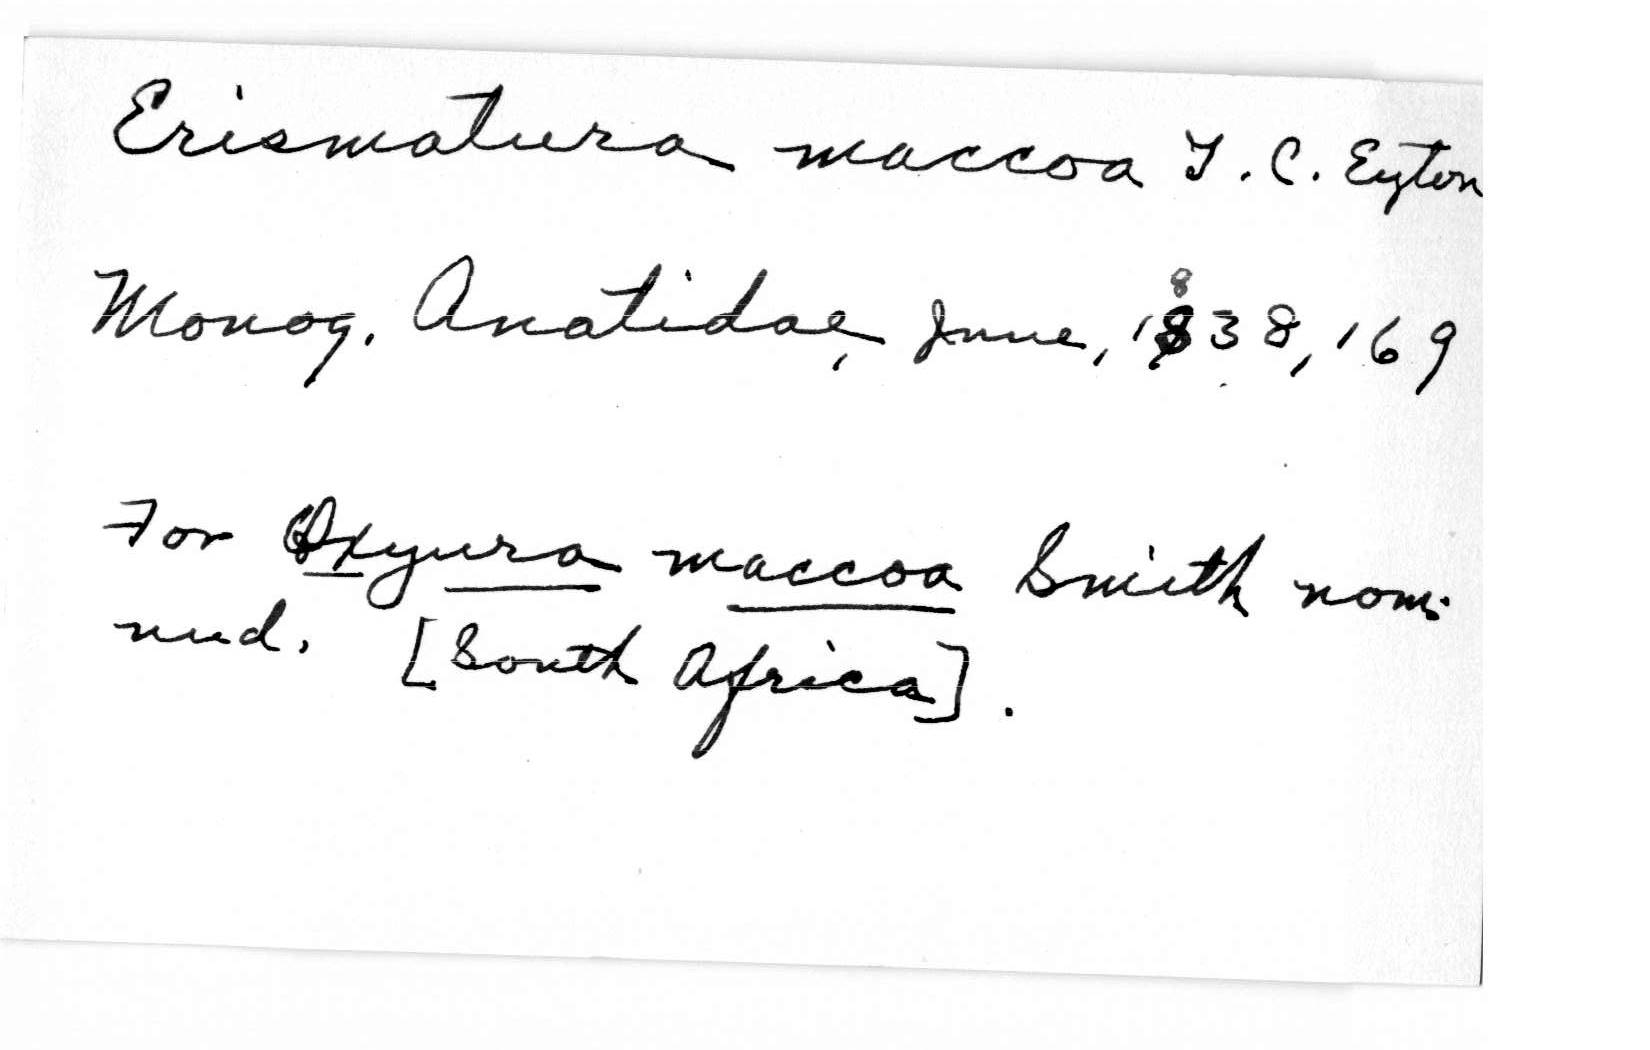 Erismatura maccoa T. C. Eyton
Monog. Anatidae, June, 1838, 169
For Oxyura maccoa Smith nom.
nud. [South Africa].